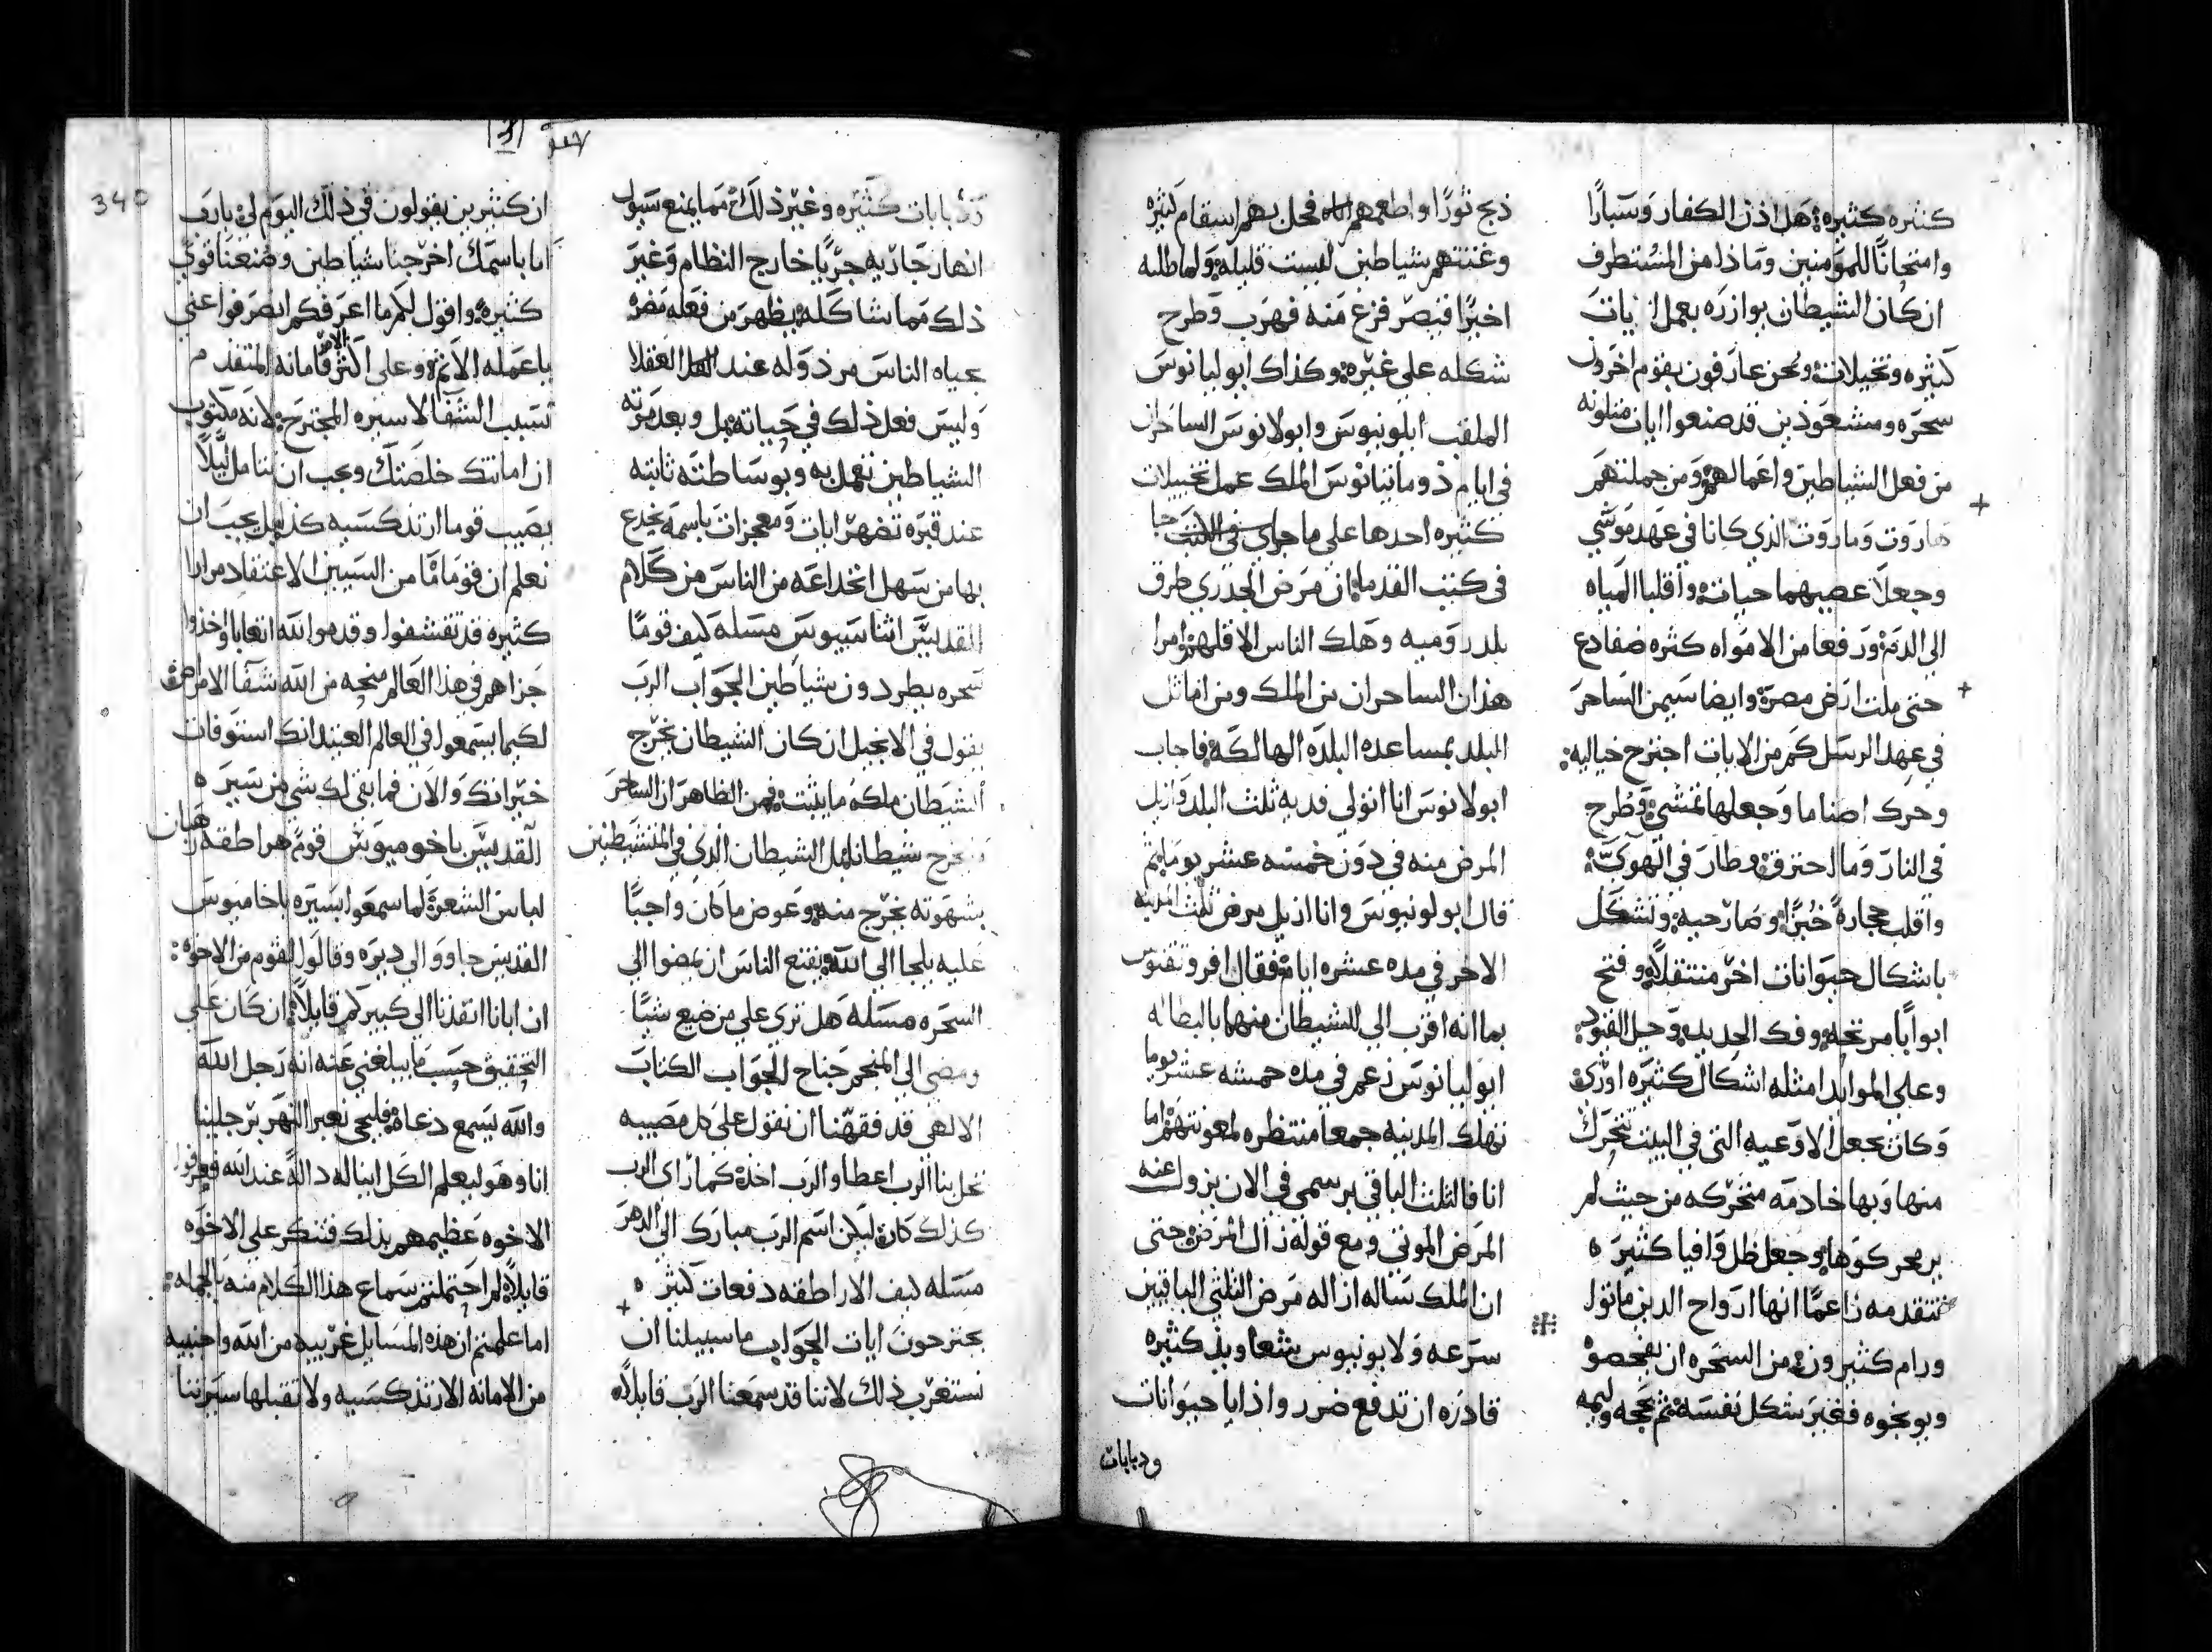 كثيره كثيره هل اذن الكفار وسبارًا
وامتحانًا للمومنين وماذا من المستطرف
ان كان الشيطان بوازره يعمل ايات
كثيره وتخييلات ونحن عارفون بقوم اخرون
سحره ومشعوذين قد صنعوا ايات متلونه
من فعل الشياطين واعمالهم ومن جملتهم
هاروت وماروت الذي كانا في عهد موسي
وجعلا عصيهما حيات واقلبا المياه
الي الدم ورفعا من الامواه كثره ضفادع
حتي ملت ارض مصر وايضا سيمن الساحر
في عهد الرسل كم من الايات اجترح خياليه
وحرك اصناما وجعلها تمشي وطرح
في النار وما احترق وطار في الهوي
واقلب حجارة خبزًا وصار حيه وتشكل
باشكال حيوانات اخر منتقلاً وفتح
ابوابًا مرتجه وفك الحديد وحل القيود
وعلي الموايد امثله اشكال كثيره اوري
وكان يجعل الاوعيه التي في البيت تتحرك
منها وبها خادمه متحركه من حيث لم
يرمحركوها وجعل ظل وافيا كثيره
تتقدمه زاعمًا انها ارواح الذين ماتوا
ورام كثيرون من السحره ان يفحصوه
ويوبخوه فغير شكل نفسه ثم بحجه وليمه
ذبح ثورًا واطعمهم فحل بهم اسقام كثيره
وغتتهم شياطين ليست قليله ولما طلبه
اخيرًا قيصر فزع منه فهرب وطرح
شكله علي غيره وكذاك ابوليانوس
الملقب ابلونيوس وابولانوس الساحران
في ايام ذوماتيانوس الملك عمل تخييلات
كثيره احدها علي ما جا
في كتب القدما ان مرض الجدري طرق
بلد روميه وهلك الناس الا قلهم وامرا
هذان الساحران من الملك ومن اماثل
البلد بمساعده البلده الهالكه فاجاب
ابولانوس انا اتولي فديه ثلث البلد وازيل
المرض منه في دون خمسه عشر يوما ثم
قال ابولونيوس وانا ازيل مرض ثلث المدينه
الاخر في مده عشره ايام فقال افرونتنوس
بما انه اقرب الي الشيطان منهما بالبطاله
ابوليانوس زعم في مده خمسه عشر يوما
تهلك المدينه جمعا منتظره لمعونتهم اما
انا فالثلث الباقي برسمي في الان يزول عنه
المرض الموتي ومع قوله زال المرض حتي
ان الملك ساله ازاله مرض الثلثي الباقيين
سرعه ولابونيوس شعاويذ كثيره
قادره ان تدفع ضرر واذايا حيوانات
ودبابات
ودبابات كثيره وغير ذلك مما يمنع سيول
انهار جاريه جريًا خارج النظام وغير
ذلك مما شاكله يظهر من فعله مضره
حياه الناس مرذوله عند العقلا
وليس فعل ذلك في حياته بل وبعد موته
الشياطين تعمل به وبوساطته ثابته
عند قبره تضهر ايات ومعجزات باسمه يخدع
بها من سهل انخداعه من الناس من كلام
القديس اثناسيوس مسله كيف قومًا
سحره يطردون شياطين الجواب الرب
يقول في الانجيل ان كان الشيطان يخرج
الشيطان ملكه ما يثبت فمن الظاهر ان الساحر
يخرج شيطانا بل الشيطان الذي في المتشيطنين
بشهوته يخرج منه وعوض ما كان واجبًا
عليه يلجا الي الله يقنع الناس ان يمضوا الي
السحره مسله هل تري علي من ضيع شيًا
ومضي الي المنجم جناح الجواب الكتاب
الالهي قد فقهنا ان نقول علي كل مصيبه
تحل بنا الرب اعطا والرب اخذ كما راي الرب
كذلك كان ليكن اسم الرب مبارك الي الدهر
مسله كيف الاراطقه دفعات كثيره
يجترحون ايات الجواب ما سبيلنا ان
نستغرب ذلك لاننا قد سمعنا الرب قايلاً
340
ان كثيرين يقولون في ذلك اليوم لي يارب
اما باسمك اخرجنا شياطين وصنعنا قوي
كثيره واقول لكم ما اعرفكم انصرفوا عني
ياعمله الاثم وعلي اكثر الامر فامانه المتقدم
تسبب الشفا لا سيره المجترح لانه مكتوب
ان امانتك خلصتك ويجب ان نتامل ليلاً
يصيب قوما ارتدكسيه كذلك بل يجب ان
نعلم ان قوما ما من السيين الاعتقاد مرارا
كثيره قد تقشفوا وقدموا لله اتعابا واخذوا
جزاهم في هذا العالم منحه من الله شفا الامراض
لكيما يسمعوا في العالم العتيد انك استوفات
خيراتك والان فما بقي لك شي من سيره
القديس باخوميوس قوم هراطقه رهبان
لباس الشعر لما سمعوا بسيره باخاميوس
القديس جاوو الي ديره وقالوا لقوم من الاخوه
ان ابانا انفذنا الي كبيركم قايلاً ان كان علي
التحقيق حسب ما يبلغني عنه انه رجل الله
والله يسمع دعاه فليجي نعبر النهر برجلينا
انا وهو ليعلم الكل اينا له داله عند الله فعرفوا
الاخوه عظيمهم بذلك فتنكر علي الاخوه
قايلاً لم احتملتم سماع هذا الكلام منه بالجمله
اما علمتم ان هذه المسايل غريبه من الله واجنبيه
من الامانه الارتدكسيه ولا تقبلها سيرتنا